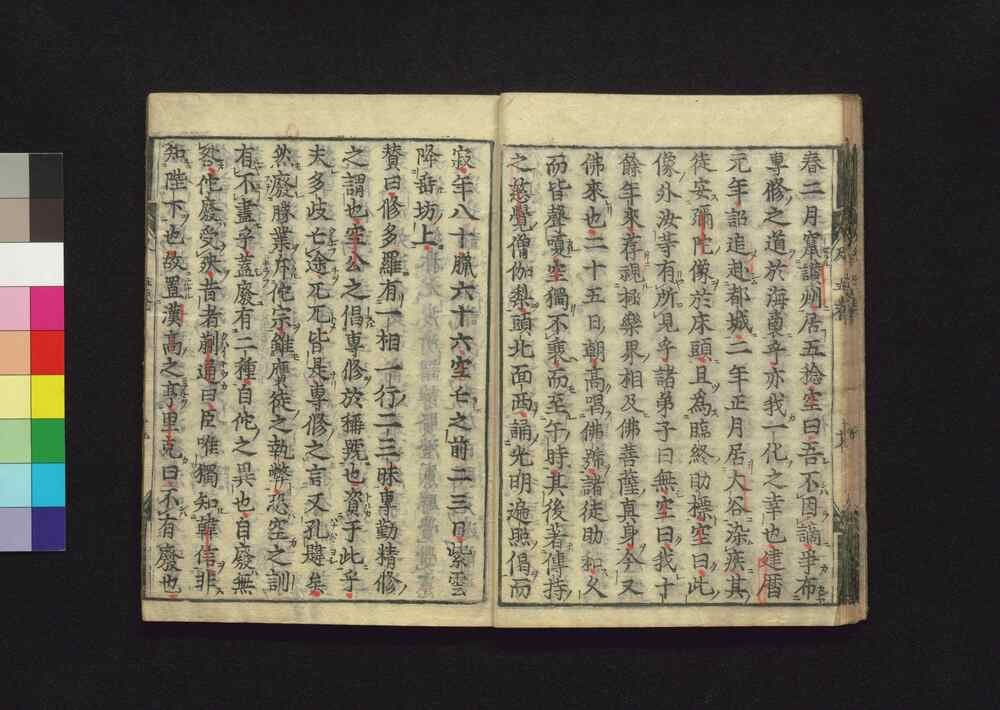 春二月竄讃州居五稔空曰吾不因謫爭布
專修之道於海裔乎亦我一化之幸也建曆
元年詔追赴都城二年正月居大谷染疾其
徒安彌陀像於床頭且爲臨終助標空曰此
像外汝等有所見乎諸弟子曰無空曰我十
餘年來荐視極樂界相及佛菩薩真身今又
佛來也二十五日朝高唱佛號諸徒助和久
而皆聲嗄空獨不衰而至午時其後著傳持
之慈覺僧伽梨頭北面西誦光明遍照偈而
寂年八十臘六十六空亡之前二三日紫雲
降垂坊上
賛曰修多羅有一相一行二三昧專勤精修
之謂也空公之倡專修於稱號也資于此乎
夫多歧亡途兀兀皆是專修之言又孔躂矣
然廢勝業斥佗宗雖應徒之執弊恐空之訓
有不盡乎蓋廢有二種自佗之異也自廢無
咎佗廢受殃昔者蒯通曰臣唯獨知韓信非
知陛下也故置漢高之亨里克曰不有廢也